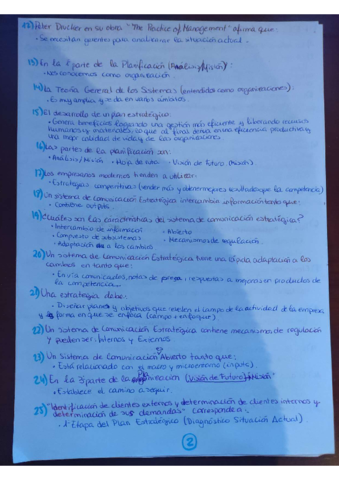 12) Peter Drucker en su obra "The Practice of Management" afirma que:
• Se necesitan gerentes para analizar la situación actual.
13) En la 1 parte de la Planificación (Análisis/Misión)
• Nos conocemos como organización.
14) La Teoría General de los Sistemas (entendida como organizaciones)
• Es muy amplia y se da en varios ámbitos.
15) El desarrollo de un plan estratégico:
• Genera beneficios logrando una gestión más eficiente y liberando recursos
humanos y materiales, lo que al final deriva en una eficiencia productiva y
una mejor calidad de vida y de las organizaciones.
16) Las partes de la planificación son:
• Análisis / Misión • Hoja de ruta • Visión de Futuro
17) Los empresarios modernos tienden a utilizar:
• Estrategias competitivas (vender más y obtener mejores resultados que la competencia)
18) Un sistema de comunicación Estratégica intercambian información tanto que:
• Contiene outputs
19) ¿Cuáles son las características del sistema de comunicación estratégica?
• Intercambio de información • Abierto
• Compuesto de subsistemas • Mecanismos de regulación
• Adaptación a los cambios
20) Un sistema de Comunicación Estratégica tiene una rápida adaptación a los
cambios en tanto que:
• Envía comunicados, notas de prensa, respuestas a mejoras en productos de
la competencia...
21) Una estrategia debe:
• Diseñar planes y objetivos que revelen el campo de la actividad de la empresa
y la forma en que se enfoca (campo + enfoque)
22) Un Sistema de Comunicación Estratégica contiene mecanismos de regulación
y pueden ser: Internos y Externos
23) Un Sistema de Comunicación Abierto tanto que:
• Está relacionado con el macro y microentorno (inputs)
24) En la 3 parte de la Planificación (Visión de Futuro)
• Establece el camino a seguir.
25) "Identificación de clientes externos y determinación de clientes internos y
determinación de sus demandas" Corresponde a:
• 1ª Etapa del Plan Estratégico (Diagnóstico Situación Actual)
2